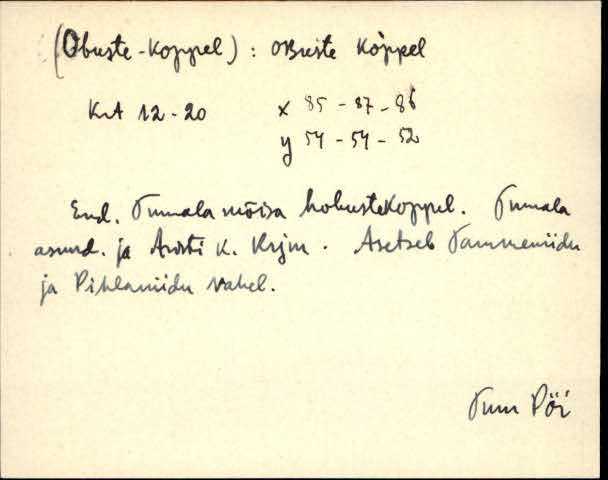 (Obuste-koppel): oBuste Koppel
KA 12-20 x 85 - 87 - 86
y 54 - 54 - 52
End. Tumala mõisa hobustekoppel. Tumala
asund. ja Ardti k. krjm. Asetseb Tammeniidu
ja Pihlaniidu vahel.
Pöi